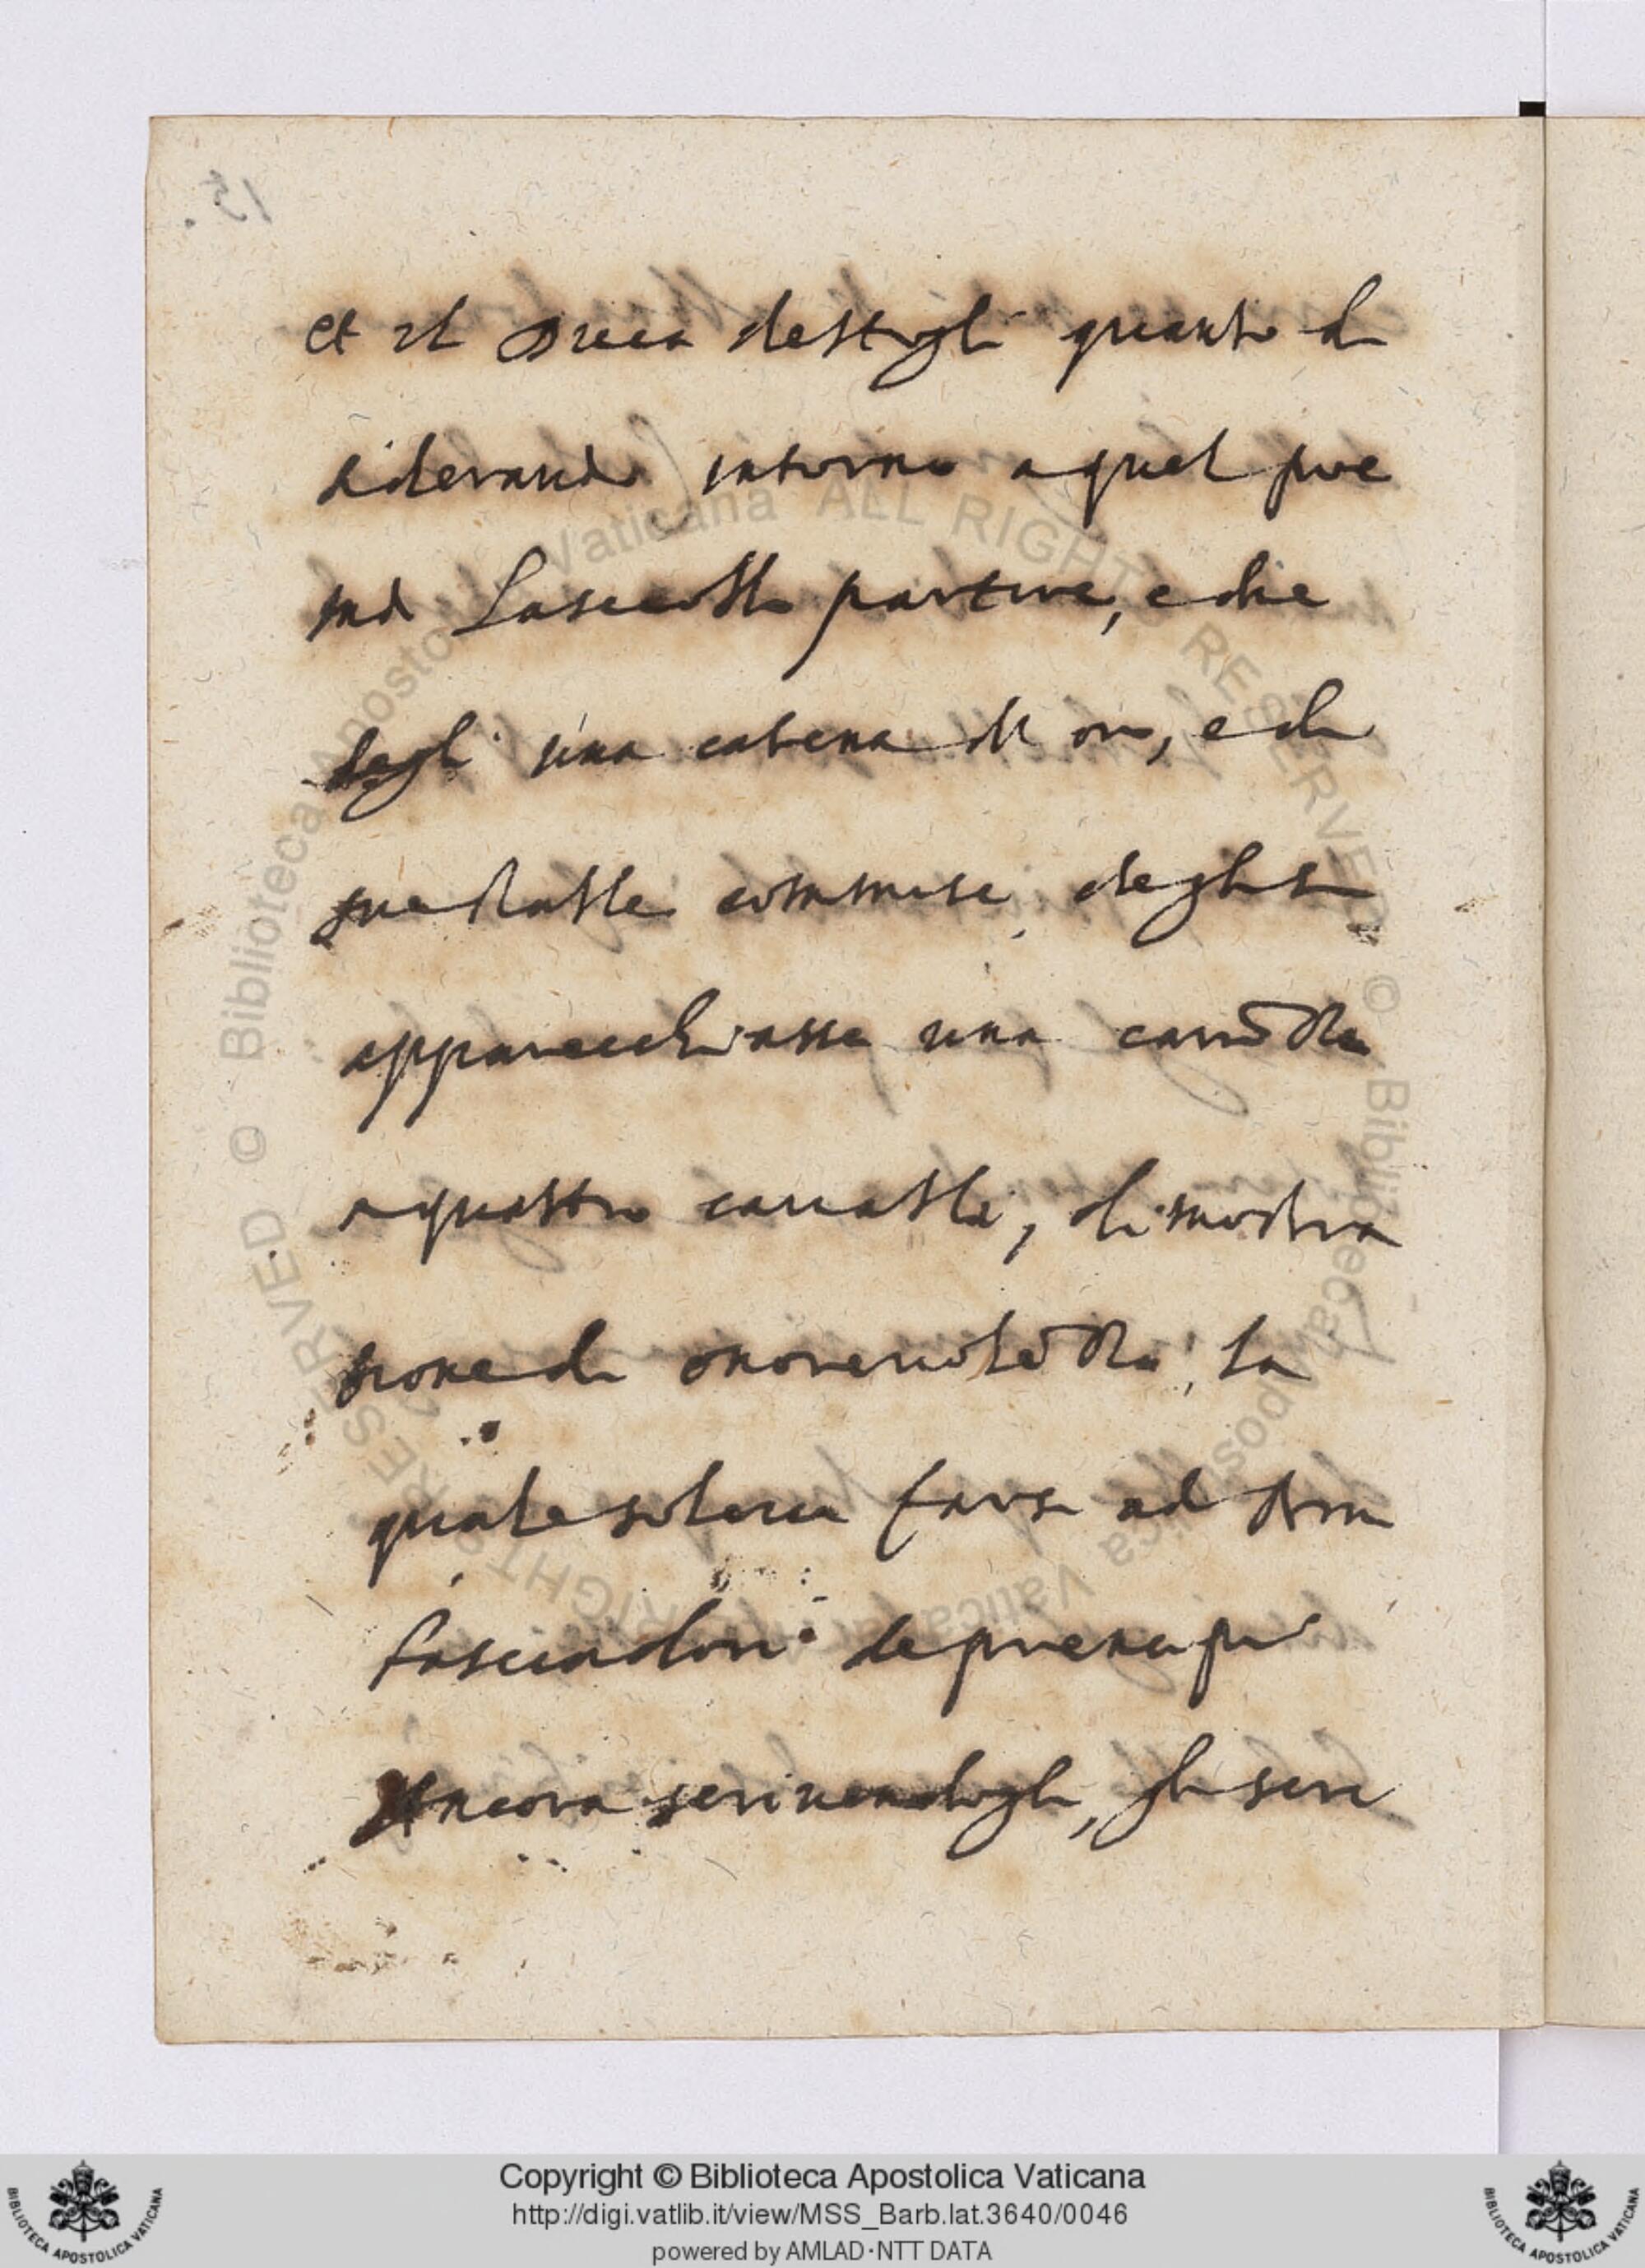 et il Duca dettogli quanto de
siderando intorno a quel poe
ma lasciollo partire, e die
degli una catena d'oro, e di
commise, che gli si
apparecchiasse una carrozza
a quattro cavalli, dimostra
zione di onorevolezza, la
quale soleva farsi ad Am
basciadori de principi
Ancora scrivendogli, gli scri
Copyright © Biblioteca Apostolica Vaticana
http://digi.vatlib.it/view/MSS_Barb.lat.3640/0046
powered by AMLAD·NTT DATA
BIBLIOTECA APOSTOLICA VATICANA
BIBLIOTECA APOSTOLICA VATICANA
© Biblioteca Apostolica Vaticana ALL RIGHTS RESERVED © Biblioteca Apostolica Vaticana ALL RIGHTS RESERVED